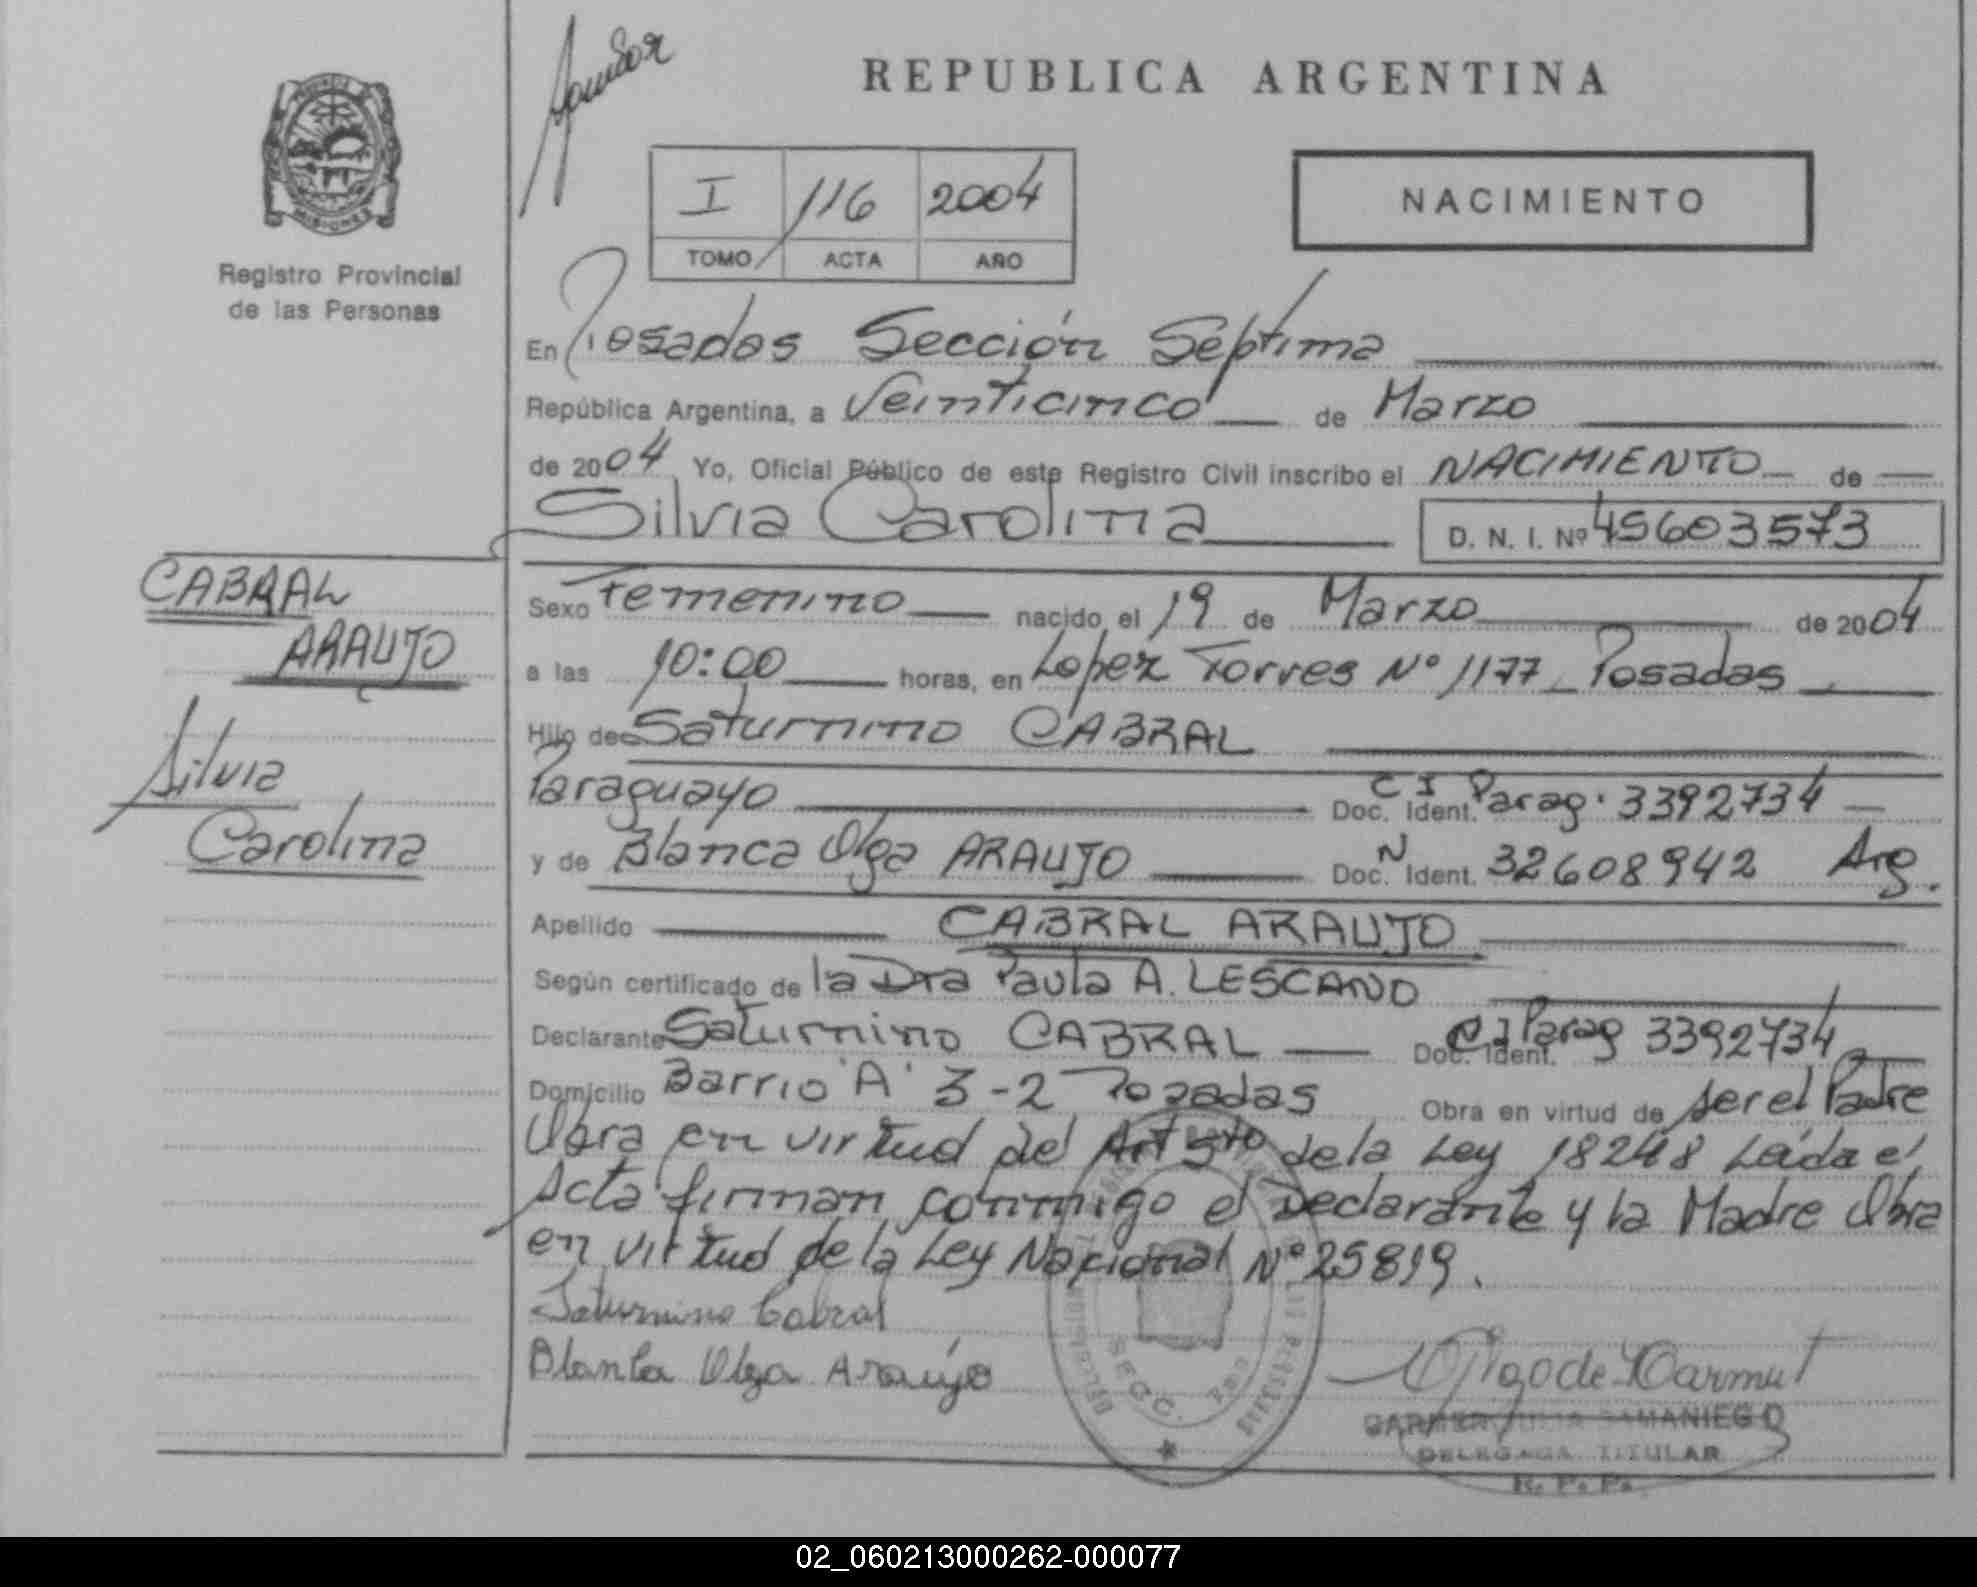 REPUBLICA ARGENTINA
MISIONES
Registro Provincial
de las Personas
I 116 2004
TOMO ACTA AÑO
NACIMIENTO
En Posadas Sección Septima
República Argentina, a Veinticinco de Marzo
de 2004 Yo, Oficial Público de este Registro Civil inscribo el NACIMIENTO de
Silvia Carolina D. N. I. Nº 45603573
CABRAL
ARAUJO
Silvia
Carolina
Sexo Femenino nacido el 19 de Marzo de 2004
a las 10:00 horas, en Lopez Torres Nº 1177 - Posadas
Hijo de Saturnino CABRAL
Paraguayo Doc. Ident. C I Parag. 3392734
y de Blanca Olga ARAUJO Doc. N Ident. 32608942 Arg.
Apellido CABRAL ARAUJO
Según certificado de la Dra Paula A. LESCANO
Declarante Saturnino CABRAL Doc. Ident. CI Parag 3392734
Domicilio Barrio "A" 3-2 Posadas Obra en virtud de ser el Padre
Obra en virtud del Art 5to de la Ley 18248 Leída el
Acta firman conmigo el Declarante y la Madre Obra
en virtud de la Ley Nacional Nº 25819.
Saturnino Cabral
Blanca Olga Araujo
SAMANIEGO
DELEGADA TITULAR
R. P. P.
SECC.
02_060213000262-000077